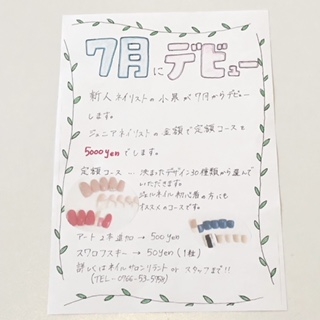 7月にデビュー
新人ネイリストの小泉が7月からデビュー
します。
ジュニアネイリストの金額で定額コースを
5000yenでします。
定額コース … 決まったデザイン30種類から選んで
いただきます。
ジェルネイル初心者の方にも
オススメのコースです。
アート2本追加 → 500yen
スワロフスキー → 50yen (1粒)
詳しくはネイルサロンリテント or スタッフまで!!
(TEL-0766-53-5758)